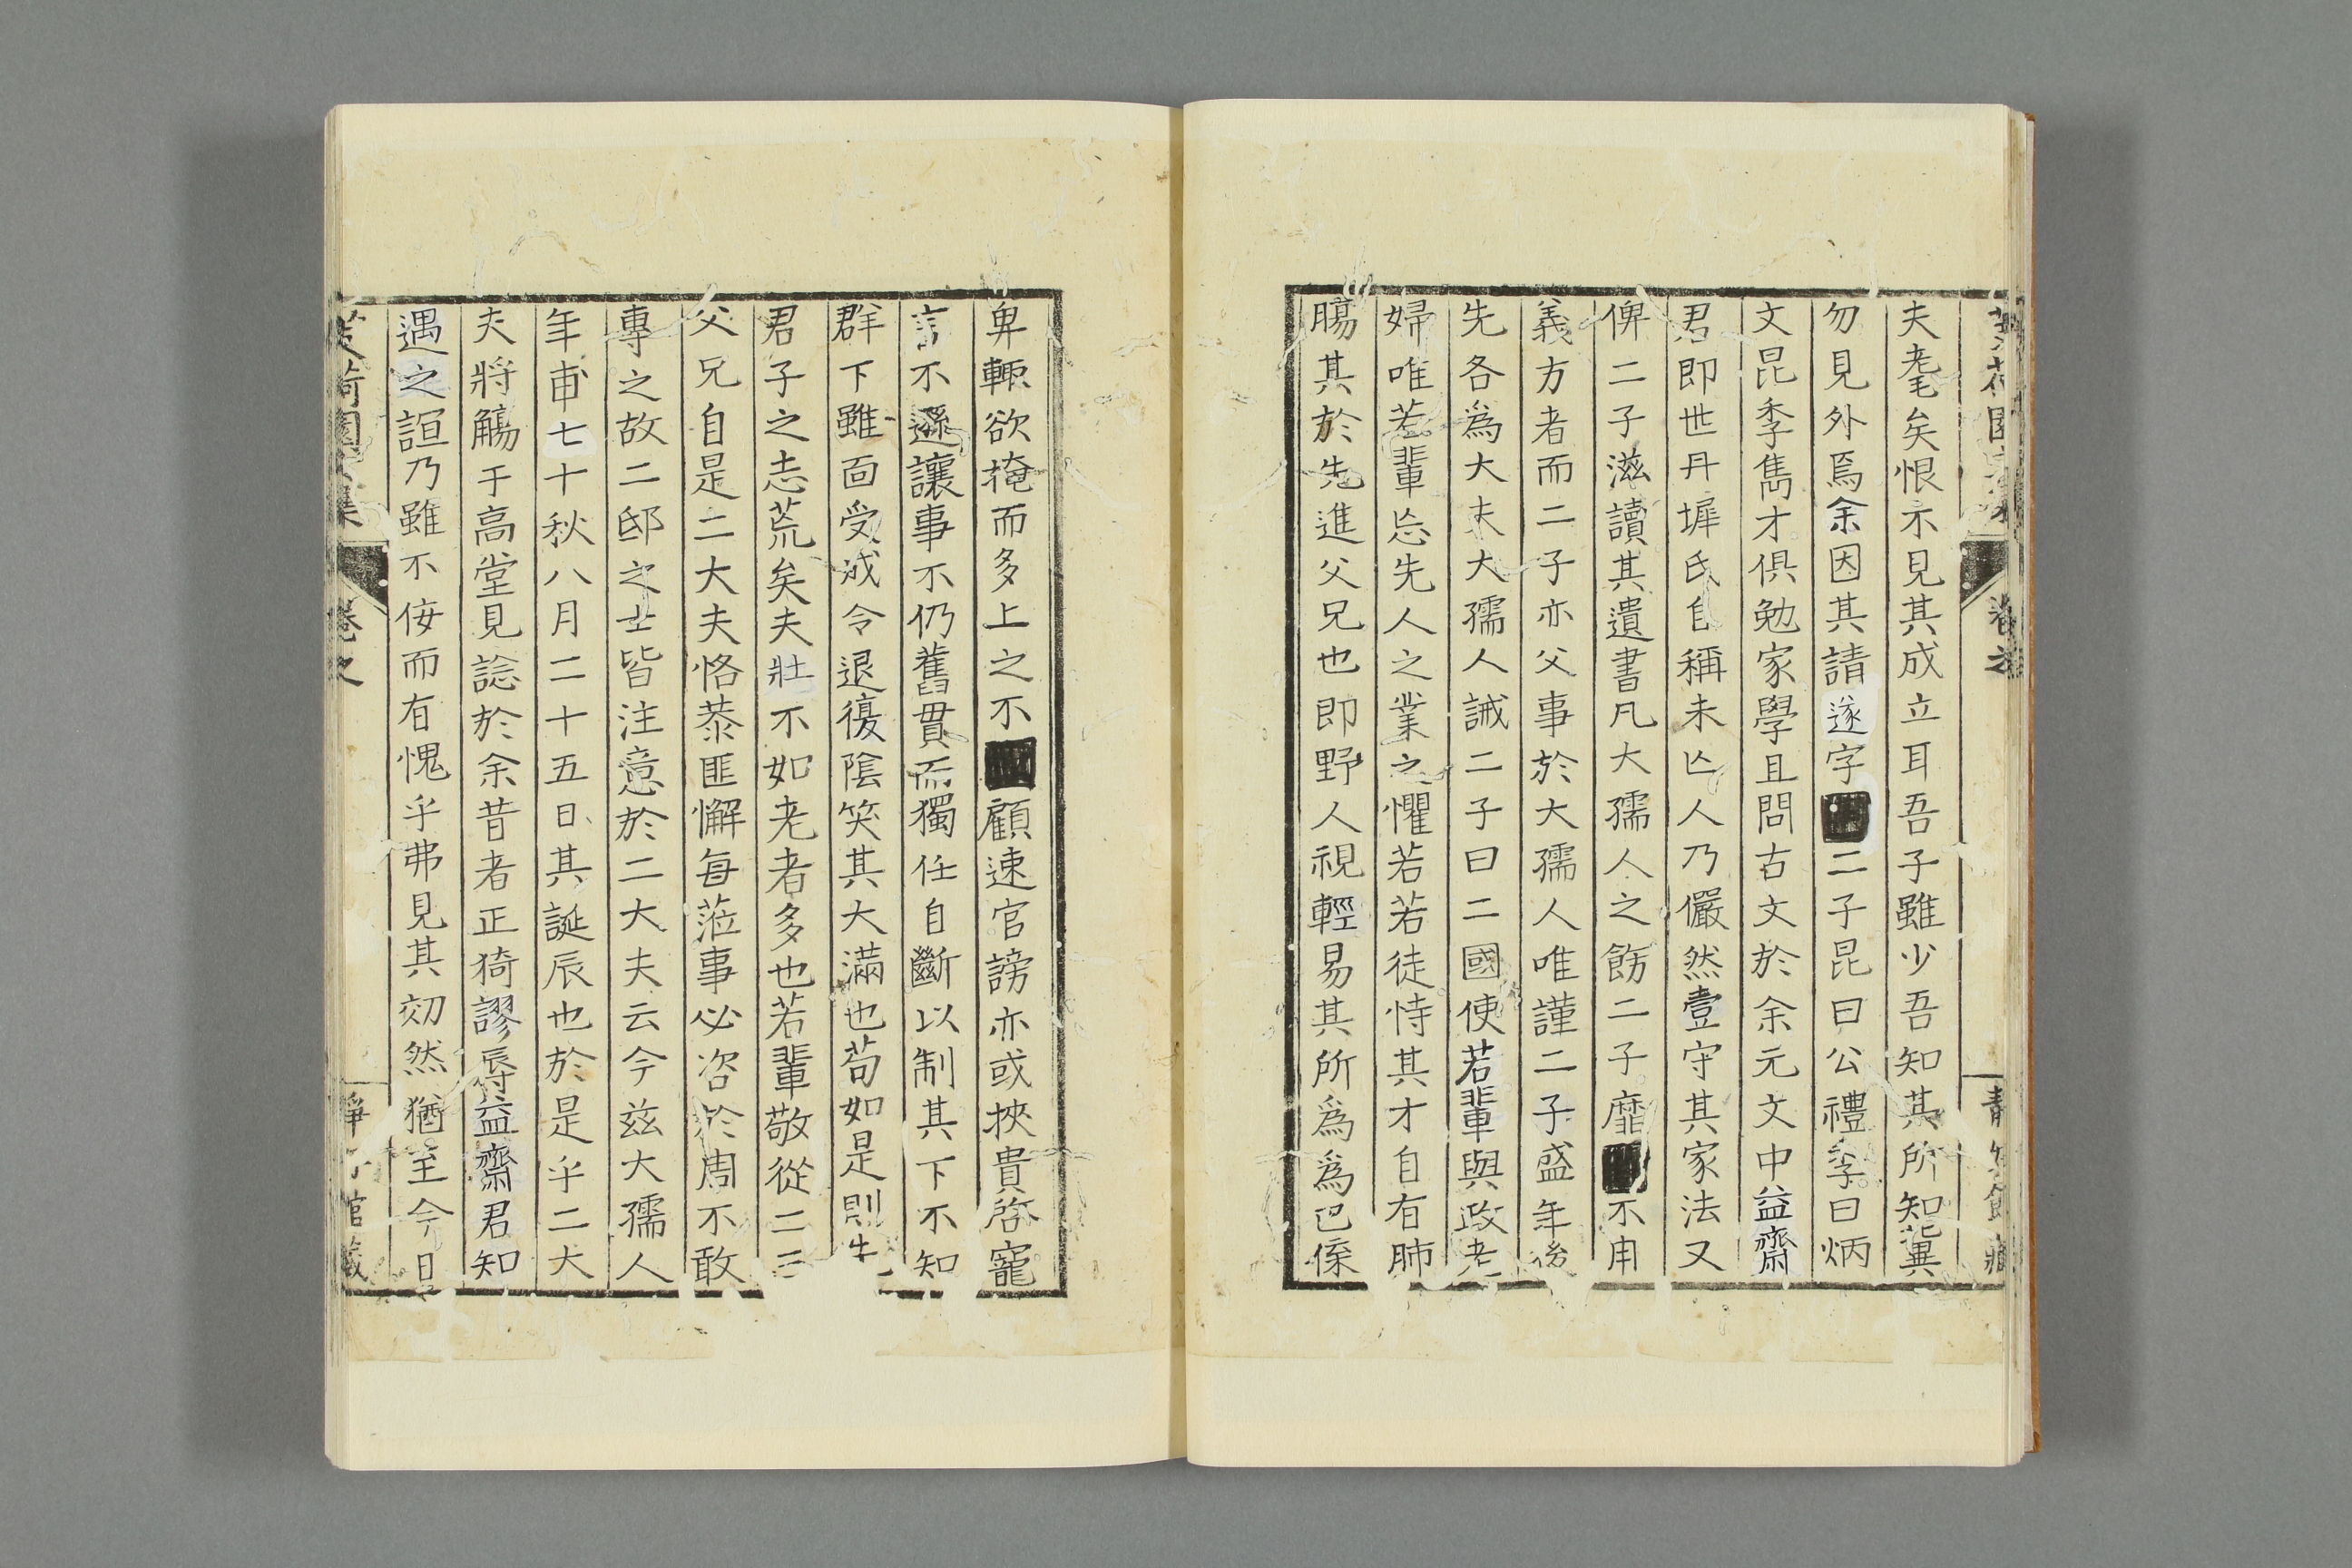 夫耄矣恨不見其成立耳吾子雖少吾知其所知冀
勿見外焉余因其請遂字■二子昆曰公禮季曰炳
文昆季雋才俱勉家學且問古文於余元文中益齋
君即世丹墀氏自稱未亡人乃儼然壹守其家法又
俾二子滋讀其遺書凡大孺人之飭二子靡■不用
義方者而二子亦父事於大孺人唯謹二子盛年後
先各爲大夫大孺人誡二子曰二國使若輩與政老
婦唯若輩忘先人之業之懼若若徒恃其才自有肺
腸其於先進父兄也即野人視輕易其所爲爲己傒
卑輙欲掩而多上之不■顧速官謗亦或挾貴啓寵
言不遜讓事不仍舊貫而獨任自斷以制其下不知
群下雖面受戒令退復陰笑其大滿也苟如是則先
君子之志荒矣夫壯不如老者多也若輩敬從二三
父兄自是二大夫恪恭匪懈每蒞事必咨於周不敢
專之故二邸之士皆注意於二大夫云今茲大孺人
年甫七十秋八月二十五日其誕辰也於是乎二大
夫將觴于高堂見諗於余昔者正猗謬辱益齋君知
遇之誼乃雖不侫而有愧乎弗見其刻然猶至今日
卷之